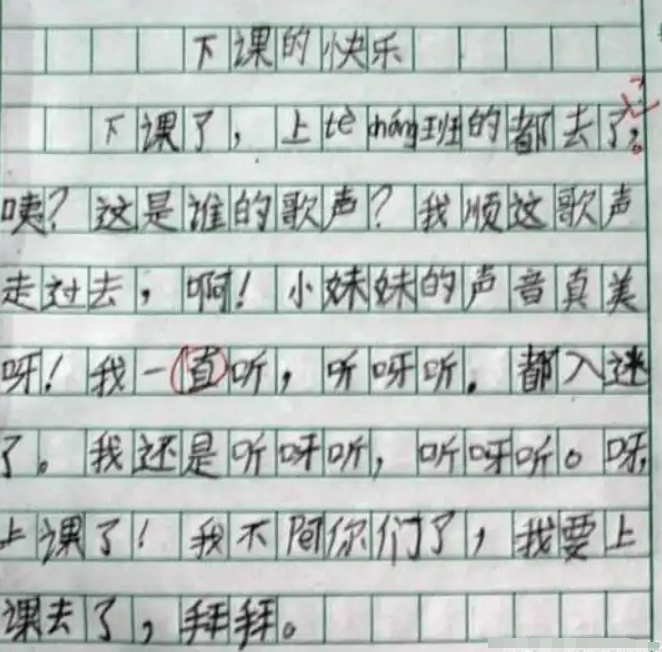 下课的快乐
下课了，上tè cháng班的都去了。
咦？这是谁的歌声？我顺这歌声
走过去，啊！小妹妹的声音真美
呀！我一直听，听呀听。都入迷
了。我还是听呀听，听呀听。呀，
上课了！我不陪你们了，我要上
课去了，拜拜。